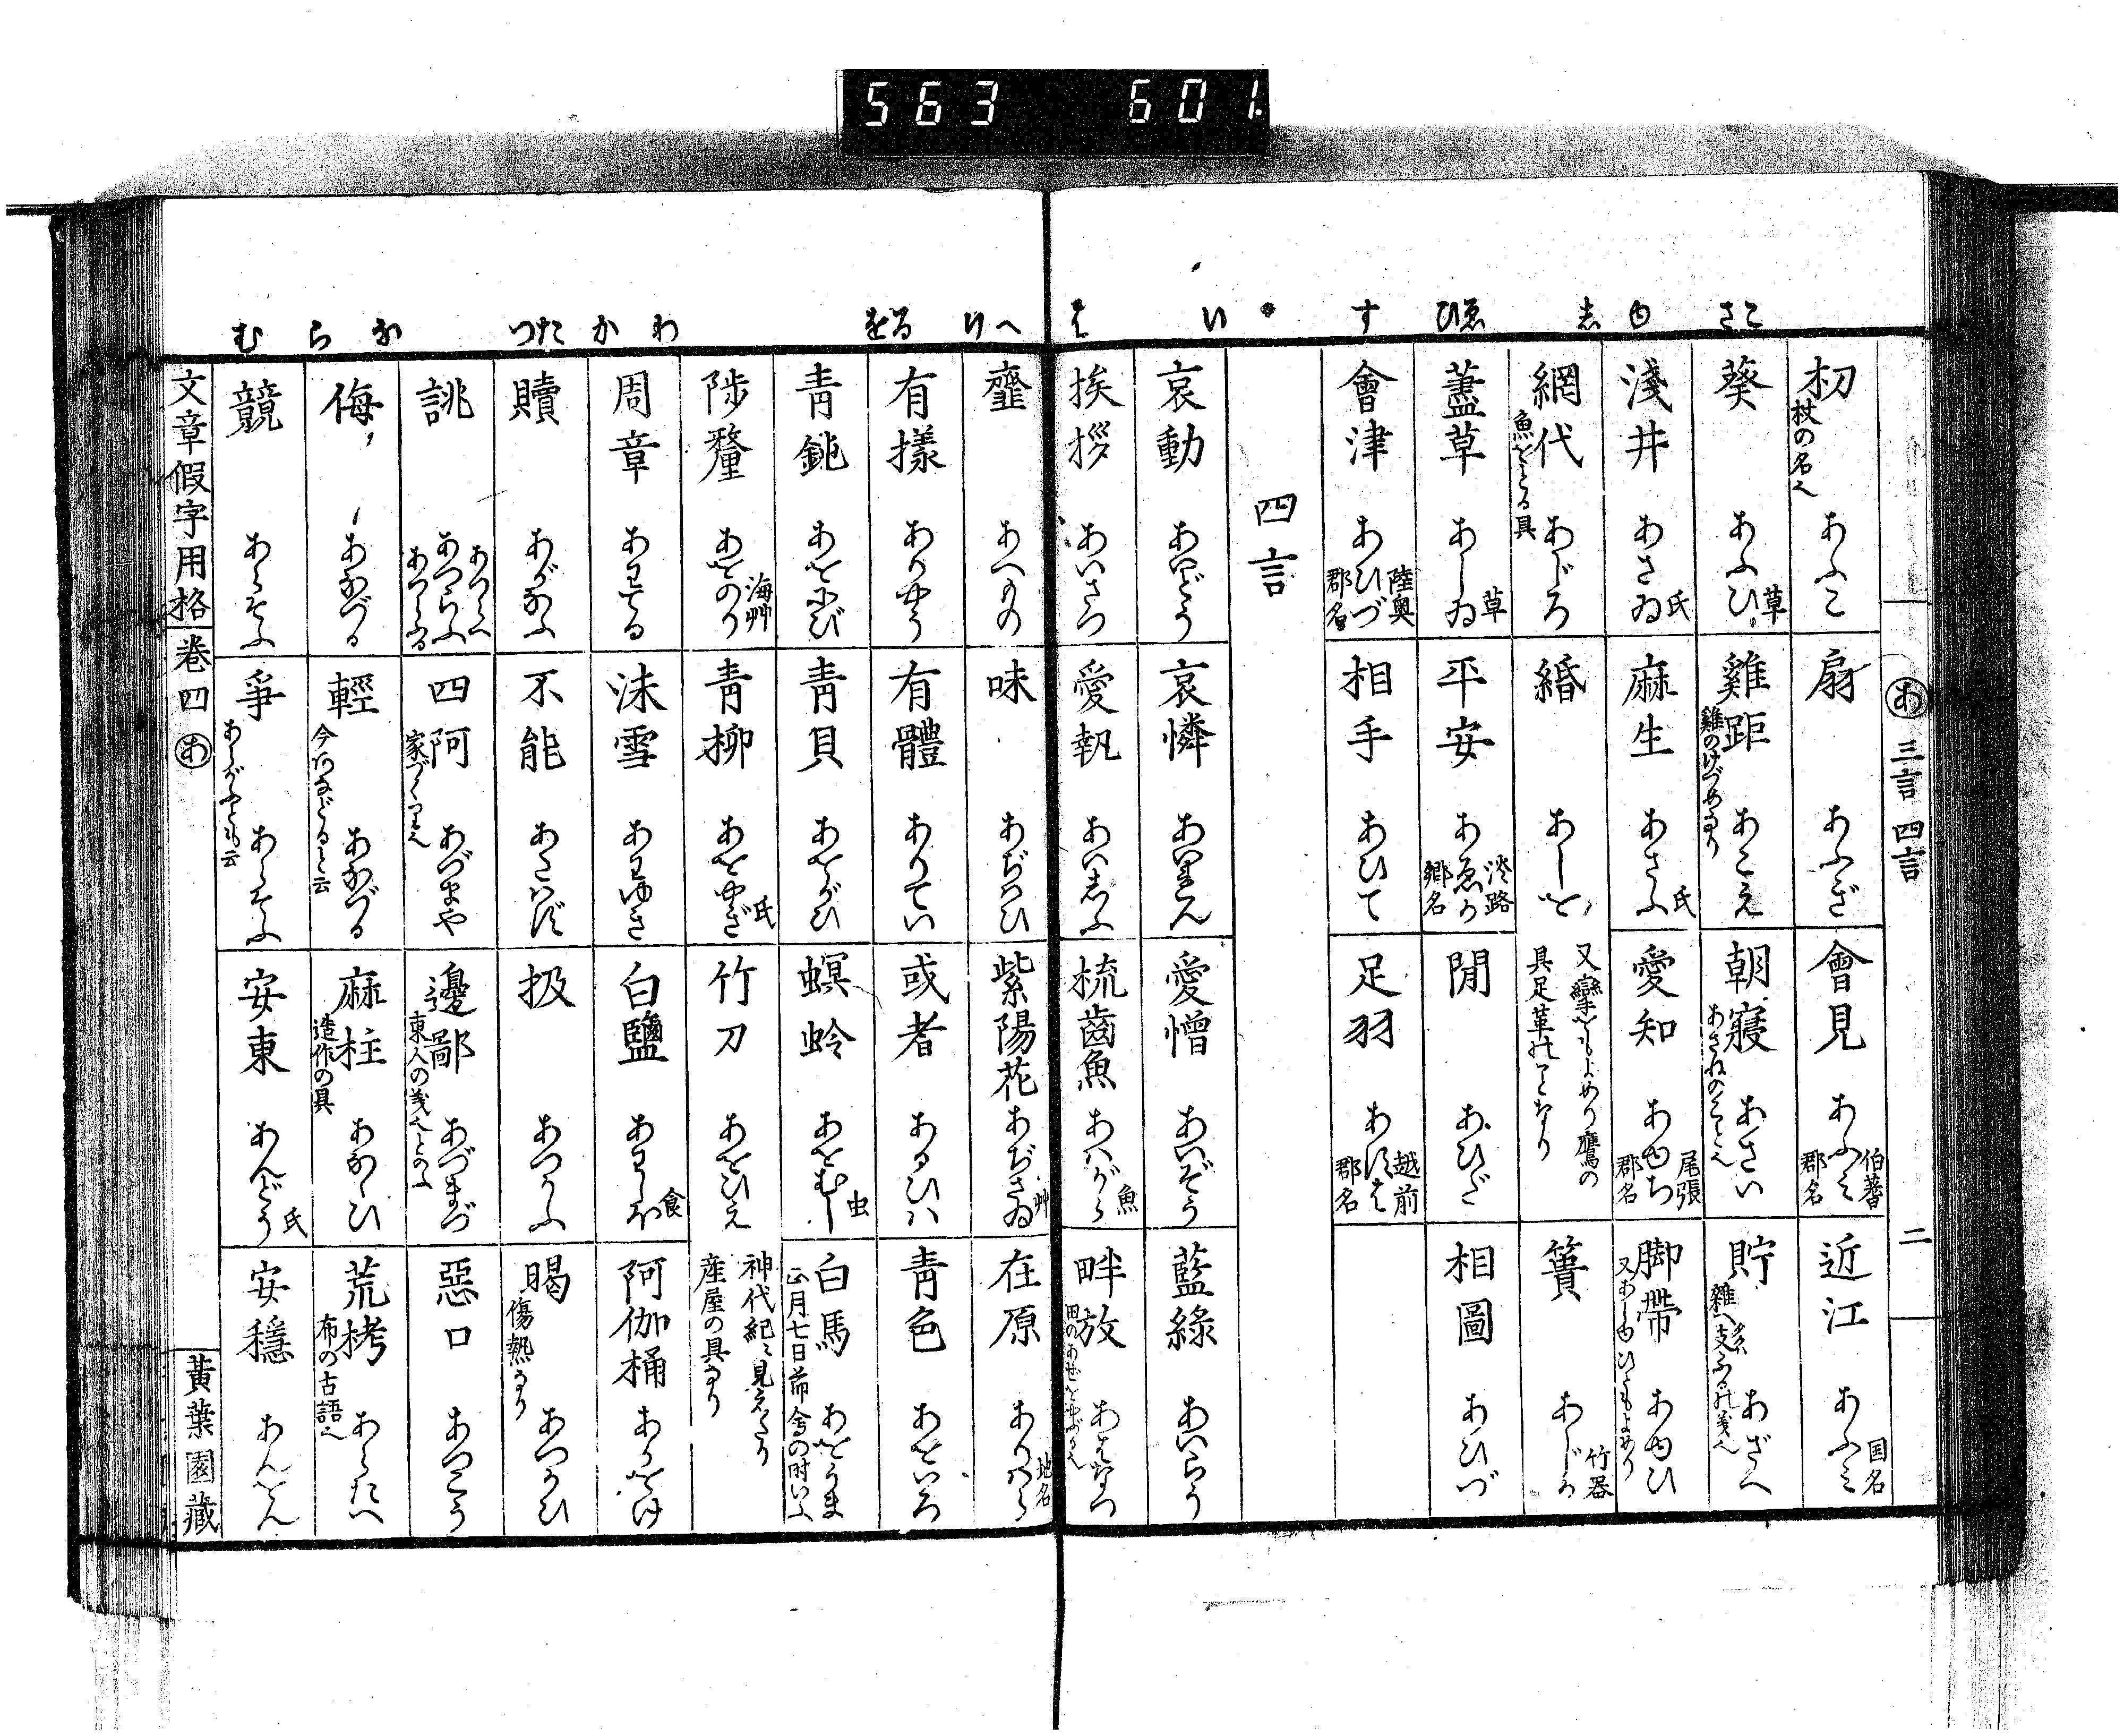 563 601.
さこ
しゆ
ひゑ
す
い
は
へ
け
るを
わ
か
たつ
な
ら
む
あ 三言 四言 二
朸 杖の名也 あふこ
扇 あふぎ
會見 あふみ 伯蓍郡名
近江 あふみ 国名
葵 あふひ 草
雞距 雞のけづめなり あこえ
朝寢 あさい
貯 あざへ
淺井 あさゐ 氏
麻生 あさふ 氏
愛知 あゆち 尾張郡名
脚帶 又あしゆひともよめり あゆひ
網代 魚をとる具 あじろ
緡 あしを 又攣をもよめり鷹の具足革のことなり
簣 あじか 竹器
藎草 あしゐ 草
平安 あゑか 淡路郷名
閒 あひだ
相圖 あひづ
會津 あひづ 陸奥郡名
相手 あひて
足羽 あすは 越前郡名
四言
哀動 あいどう
哀憐 あいれん
愛憎 あいぞう
藍綠 あいらう
挨拶 あいさつ
愛執 あいしふ
梳齒魚 あハがら 魚
畔放 あはなつ
虀 あへもの
味 あぢハひ
紫陽花 あぢさゐ 艸
在原 ありハら 地名
有樣 ありやう
有體 ありてい
或者 あるひハ
青色 あをいろ
青鈍 あをにび
青貝 あをがひ
螟蛉 あをむし 虫
白馬 正月七日節會の時いふ あをうま
陟釐 あをのり 海艸
青柳 あをやぎ 氏
竹刀 あをひえ 神代紀に見えたり産屋の具なり
周章 あわてる
沫雪 あわゆき
白鹽 あわしほ 食
阿伽桶 あかをけ
贖 あがなふ
不能 あたハず
扱 あつかふ
暍 傷熱なり あつかひ
誂 あつらへ あつらふ あつらふる
四阿 家づくり也 あづまや
邊鄙 あづまづ
惡口 あつこう
侮 あなづる
輕 今あなどると云 あなづる
麻柱 造作の具 あなゝひ
荒栲 布の古語也 あらたへ
競 あらそふ
爭 あらがふとも云 あらそふ
安東 あんどう 氏
安穩 あんをん
文章假字用格 卷四 あ 黃葉園藏